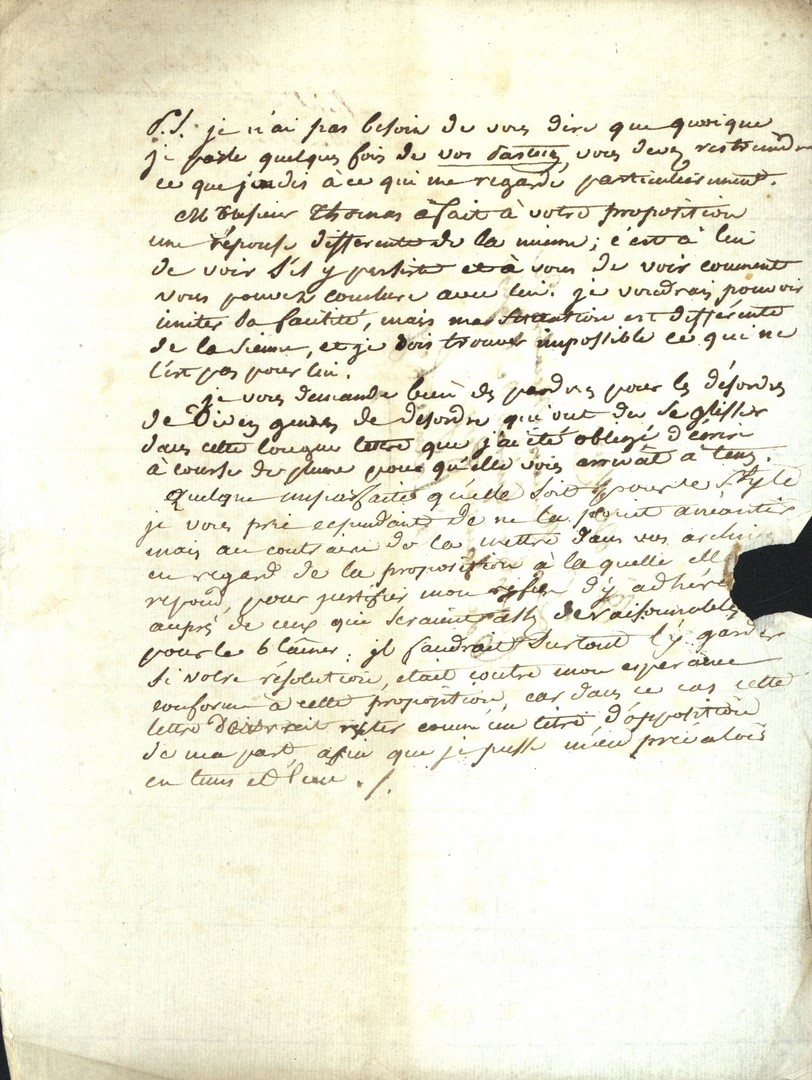 P.S. je n'ai pas besoin de vous dire que quoique
je parle quelques fois de vos vous devez restreindre
ce que j'en dis à ce qui me regarde particulierement.
Monsieur Thomas a fait à votre proposition
une réponse differente de la mienne; c'est à lui
de voir s'il y persiste et à vous de voir comment
vous pouvez conclure avec lui. je voudrais pouvoir
imiter sa facilité, mais ma situation est différente
de la sienne, et je dois trouver impossible ce qui ne
l'est pas pour lui.
je vous demande bien des pardons pour les désordres
de divers genres de desordre qui ont du se glisser
dans cette longue lettre que j'ai été obligé d'écrire
à course de plume pour qu'elle vous arrivât à tems.
Quelque imparfaite qu'elle soit pour le style
je vous prie cependant de ne la point anéantir
mais au contraire de la mettre dans vos archi
en regard de la proposition à la quelle ell
repond, pour justifier mon refus d'y adhére
auprès de ceux qui seraient assez deraisonnables
pour le blâmer; il faudrait surtout l'y garder
si votre résolution, était contre mon espérance
conforme à cette proposition, car dans ce cas cette
lettre devrait rester comme un titre d'opposition
de ma part, afin que je pusse m'en prévaloir
en tems et lieu ./.